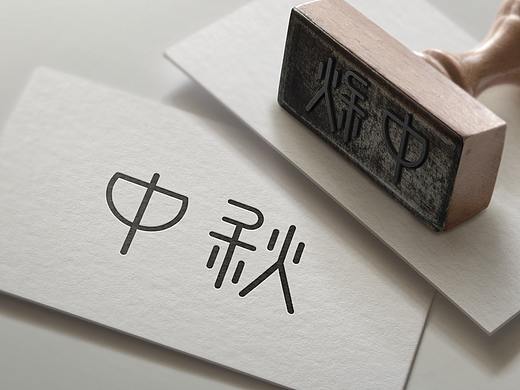 中秋
中秋